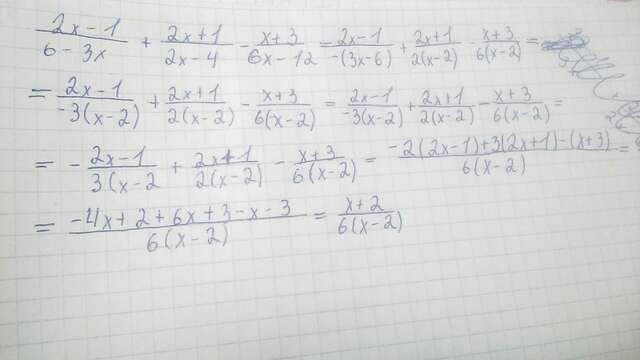 (2x-1)/(6-3x) + (2x+1)/(2x-4) - (x+3)/(6x-12) = (2x-1)/(-(3x-6)) + (2x+1)/(2(x-2)) - (x+3)/(6(x-2)) =
= (2x-1)/(-3(x-2)) + (2x+1)/(2(x-2)) - (x+3)/(6(x-2)) = (2x-1)/(-3(x-2)) + (2x+1)/(2(x-2)) - (x+3)/(6(x-2)) =
= - (2x-1)/(3(x-2) + (2x+1)/(2(x-2)) - (x+3)/(6(x-2)) = (-2(2x-1)+3(2x+1)-(x+3))/(6(x-2)) =
= (-4x+2+6x+3-x-3)/(6(x-2)) = (x+2)/(6(x-2))